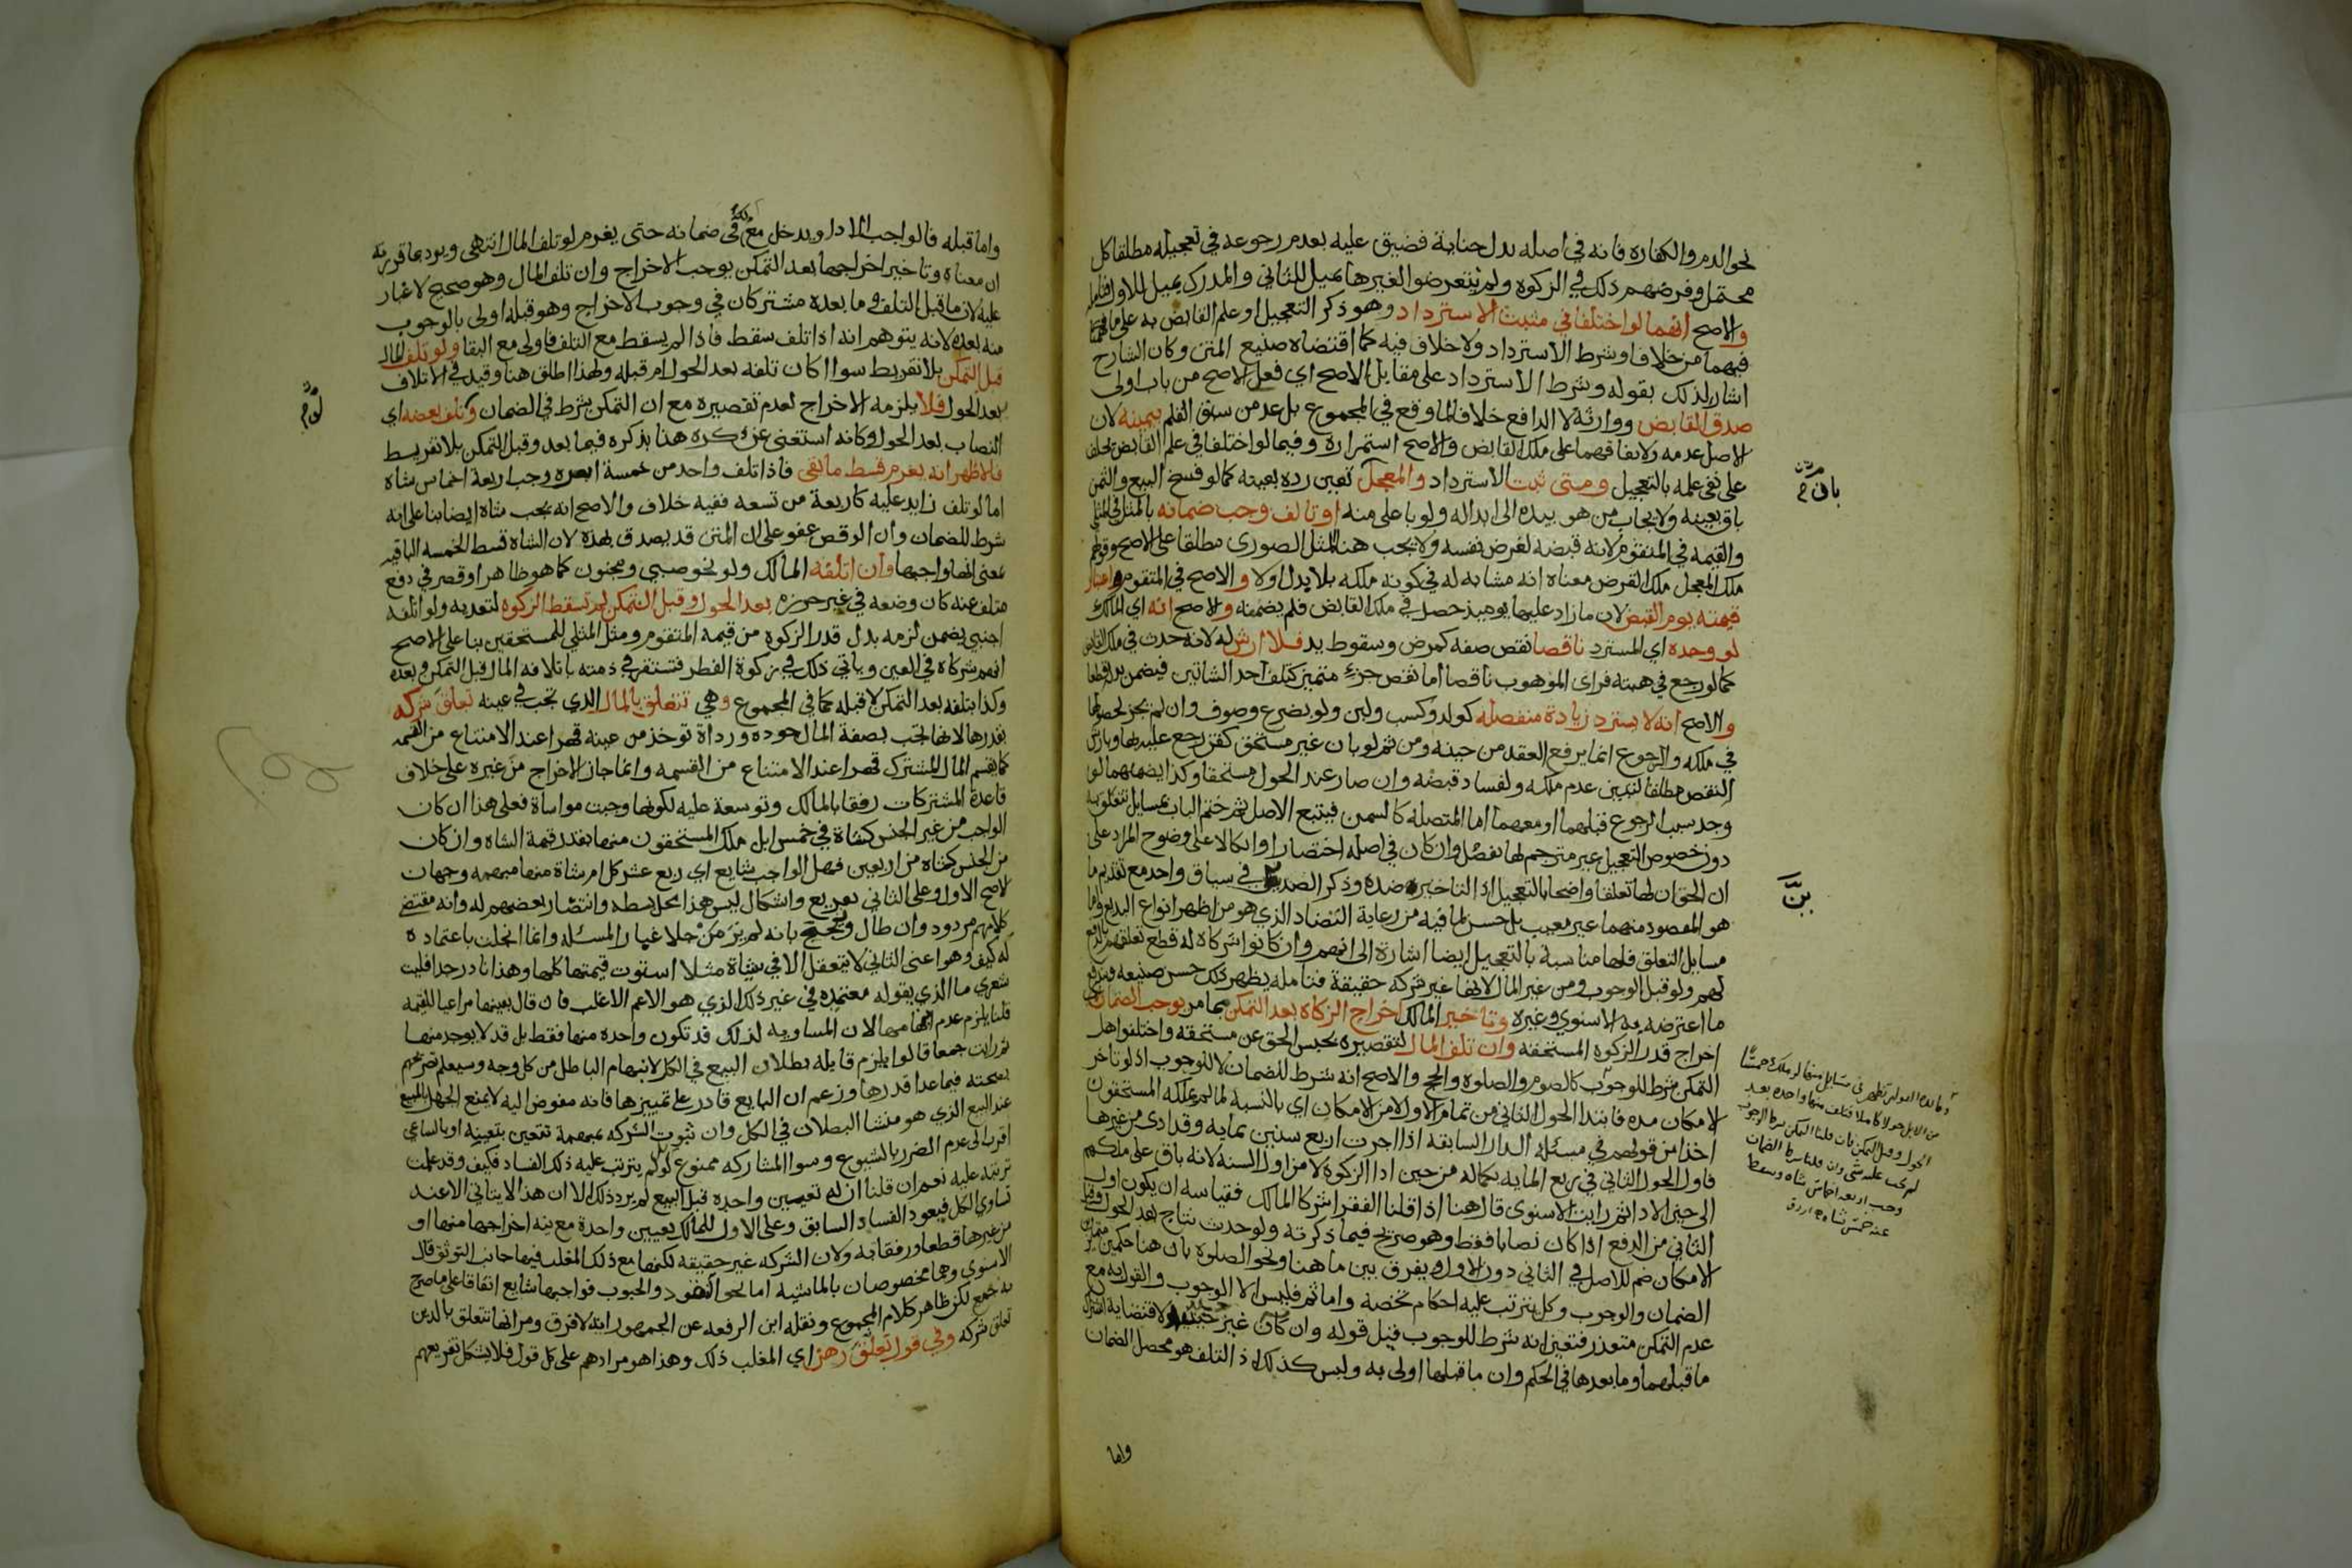 نحو الدم والكفاره فانه في اصله بدل جناية فضيق عليه بعدم رجوعه في تعجيله مطلقا كل
محتمل وفرضهم ذلك في الزكوه ولم يتعرضوا لغيرها يميل للثاني والمدرك يميل للاول
والاصح انهما لو اختلفا في مثبت الاسترداد وهو ذكر التعجيل او علم القابض به على ما
فيهما من خلاف او شرط الاسترداد ولا خلاف فيه كما اقتضاه صنيع المتن وكان الشارح
اشار لذلك بقوله وشرط الاسترداد على مقابل الاصح اي فعلى الاصح من باب اولى
صدق القابض ووارثه لا الدافع خلافا لما وقع في المجموع بل عد من سبق القلم بيمينه لان
الاصل عدمه ولاتفاقهما على ملك القابض والاصح استمراره وفيما لو اختلفا في علم القابض يحلف
على نفي علمه بالتعجيل ومتى ثبت الاسترداد والمعجل تعين رده بعينه كما لو فسخ البيع والثمن
باق بعينه ولا يجاب من هو بيده الى ابداله ولو باعلى منه او تالف وجب ضمانه بالمثل في المثلي
والقيمه في المتقوم لانه قبضه لغرض نفسه ولا يجب هنا المثل الصوري مطلقا على الاصح وقولهم
ملك المعجل ملك القرض معناه انه مشابه له في كونه ملكه بلا بدل اولا والاصح في المتقوم اعتبار
قيمته يوم القبض لان ما زاد عليها يوميذ حصل في ملك القابض فلم يضمنه والاصح انه اي المالك
لو وجده اي المسترد ناقصا نقص صفه كمرض وسقوط يد فلا ارش له لانه حدث في ملك القابض
كما لو رجع في هبته فراى الموهوب ناقصا اما نقص جزء متميز كتلف احد الشاتين فيضمن بدله قطعا
والاصح انه لا يسترد زيادة منفصله كولد وكسب ولبن ولو بضرع وصوف وان لم يجز لحصولها
في ملكه والرجوع انما يرفع العقد من حينه ومن ثم لو بان غير مستحق كقن رجع عليه بها وبارش
النقص مطلقا لتبين عدم ملكه ولفساد قبضه وان صار عند الحول مستحقا وكذا يضمنهما لو
وجد سبب الرجوع قبلهما او معهما اما المتصله كالسمن فيتبع الاصل ثم ختم الباب بمسايل تتعلق به
دون خصوص التعجيل غير مترجم لها بفصل وان كان في اصله اختصارا واتكالا على وضوح المراد على
ان الحق ان لها تعلقا واضحا بالتعجيل اذ التاخير ضده وذكر الضد في سياق واحد مع تقديم ما
هو المقصود منهما غير معيب بل حسن لما فيه من رعاية التضاد الذي هو من اظهر انواع البديع واما
مسايل التعلق فلها مناسبة بالتعجيل ايضا اشارة الى انهم وان كانوا شركاه له قطع تعلقهم بالدفع
لهم ولو قبل الوجوب ومن غير المال لانها غير شركه حقيقة فتامله يظهر لك حسن صنيعه وتزييف
ما اعترضه به الاسنوي وغيره وتاخير المالك اخراج الزكاه بعد التمكن بما مر يوجب الضمان اي
اخراج قدر الزكوه المستحقه وان تلف المال لتقصيره بحبس الحق عن مستحقه واختلفوا هل
التمكن شرط للوجوب كالصوم والصلوه والحج والاصح انه شرط للضمان لا للوجوب اذ لو تاخر
الامكان مده فابتدا الحول الثاني من تمام الاول لا من الامكان اي بالنسبة لما لم يملكه المستحقون
اخذا من قولهم في مسئله الدار السابقه اذا اجرت اربع سنين بمايه وقد ادى من غيرها
فاول الحول الثاني في ربع المايه بكماله من حين ادا الزكوه لا من اول السنه لانه باق على ملكهم
الى حين الادا ثم رايت الاسنوي قال هنا اذا قلنا الفقرا شركا المالك فقياسه ان يكون اول
الثاني من الدفع اذا كان نصابا فقط وهو صريح فيما ذكرته ولو حدث نتاج بعد الحول وقبل
الامكان ضم للاصل في الثاني دون الاول ويفرق بين ما هنا ونحو الصلوة بان هنا حكمين متمايزين
الضمان والوجوب وكل يترتب عليه احكام تخصه واما ثم فليس الا الوجوب والقول به مع
عدم التمكن متعذر فتعين انه شرط للوجوب قيل قوله وان كان غير جيد لاقتضايه اشتراك
ما قبلهما وما بعدها في الحكم وان ما قبلها اولى به وليس كذلك اذ التلف هو محصل الضمان
واما
باق م
لم يجب عليه شي وان قلنا شرط الضمان
وجب اربعه اخماس شاه وسقط
واما قبله فالواجب الادا ويدخل في ضمانه حتى يغرم لو تلف المال انتهى ويرد بما قررته
ان معناه وتاخير اخراجها بعد التمكن يوجب الاخراج وان تلف المال وهو صحيح لا غبار
عليه لان ما قبل التلف وما بعده مشتركان في وجوب الاخراج وهو قبله اولى بالوجوب
منه بعده لانه يتوهم انه اذا تلف سقط فاذا لم يسقط مع التلف فاولى مع البقا ولو تلف المال
قبل التمكن بلا تفريط سوا اكان تلفه بعد الحول ام قبله ولهذا اطلق هنا وقيد في الاتلاف
ببعد الحول فلا يلزمه الاخراج لعدم تقصيره مع ان التمكن شرط في الضمان وتلف بعضه اي
النصاب بعد الحول وكانه استغنى عن ذكره هنا بذكره فيما بعد وقبل التمكن بلا تفريط
فالاظهر انه يغرم قسط ما بقي فاذا تلف واحد من خمسة ابعره وجب اربعة اخماس شاه
اما لو تلف زايد عليه كاربعة من تسعه ففيه خلاف والاصح انه يجب شاه ايضا بنا على انه
شرط للضمان وان الوقص عفو على ان المتن قد يصدق بهذه لان الشاه قسط الخمسه الباقيه
بمعنى انها واجبها وان اتلفه المالك ولو نحو صبي ومجنون كما هو ظاهر او قصر في دفع
متلف عنه كان وضعه في غير حرزه بعد الحول وقبل التمكن لم تسقط الزكوه لتعديه ولو اتلفه
اجنبي يضمن لزمه بدل قدر الزكوه من قيمه المتقوم ومثل المثلي للمستحقين بنا على الاصح
انهم شركاه في العين وياتي ذلك في زكوة الفطر فتستقر في ذمته باتلافه المال قبل التمكن وبعده
وكذا بتلفه بعد التمكن لا قبله كما في المجموع وهي تتعلق بالمال الذي تجب في عينه تعلق شركه
بقدرها لانها تجب بصفة المال جوده ورداة توخذ من عينه قهرا عند الامتناع من القسمه
كما يقسم المال المشترك قهرا عند الامتناع من القسمه وانما جاز الاخراج من غيره على خلاف
قاعدة المشتركات رفقا بالمالك وتوسعة عليه لكونها وجبت مواساة فعلى هذا ان كان
الواجب من غير الجنس كشاة في خمس ابل ملك المستحقون منها بقدر قيمة الشاه وان كان
من الجنس كشاه من اربعين فهل الواجب شايع اي ربع عشر كل ام شاة منها مبهمه وجهان
الاصح الاول وعلى الثاني تفريع واشكال ليس هذا محل بسطه وانتصار بعضهم له وانه مقتضى
كلامهم مردود وان طال وتبجح بانه لم ير من جلا غبار المسئله وانما انجلت باعتماده
له كيف وهو اعني الثاني لا يتعقل الا في شياة مثلا استوت قيمتها كلها وهذا نادر جدا فليت
شعري ما الذي يقوله معتمده في غير ذلك الذي هو الاعم الاغلب فان قال بعينها مراعيا للقيمه
قلنا يلزم عدم ابهامها لان المساويه لذلك قد تكون واحده منها فقط بل قد لا يوجد منها
ثم رايت جمعا قالوا يلزم قايله بطلان البيع في الكل لانبهام الباطل من كل وجه وسيعلم تصريحهم
بصحته فيما عدا قدرها وزعم ان البايع قادر على تمييزها فانه مفوض اليه لا يمنع الجهل بالمبيع
عند البيع الذي هو منشا البطلان في الكل وان ثبوت الشركه بمبهمة تتعين بتعيينه او بالساعي
اقرب الى عدم الضرر بالشيوع وسوا المشاركه ممنوع لو لم يترتب عليه ذلك الفساد فكيف وقد علمت
ترتبه عليه نعم ان قلنا ان له تعيين واحده قبل البيع لم يرد ذلك الا ان هذا لا يتاتى الا عند
تساوي الكل فيعود الفساد السابق وعلى الاول للمالك تعيين واحدة مع نيه اخراجها منها او
من غيرها قطعا ورفقا به ولان الشركه غير حقيقه لكنها مع ذلك المغلب فيها جانب التوثق قال
الاسنوي وهما مخصوصان بالماشيه اما نحو النقود والحبوب فواجبها شايع اتفاقا على ما صرح
به جمع لكن ظاهر كلام المجموع ونقله ابن الرفعه عن الجمهور انه لا فرق ومر انها تتعلق بالدين
تعلق شركه وفي قول تعلق رهن اي المغلب ذلك وهذا هو مرادهم على كل قول فلا يشكل تفريعهم